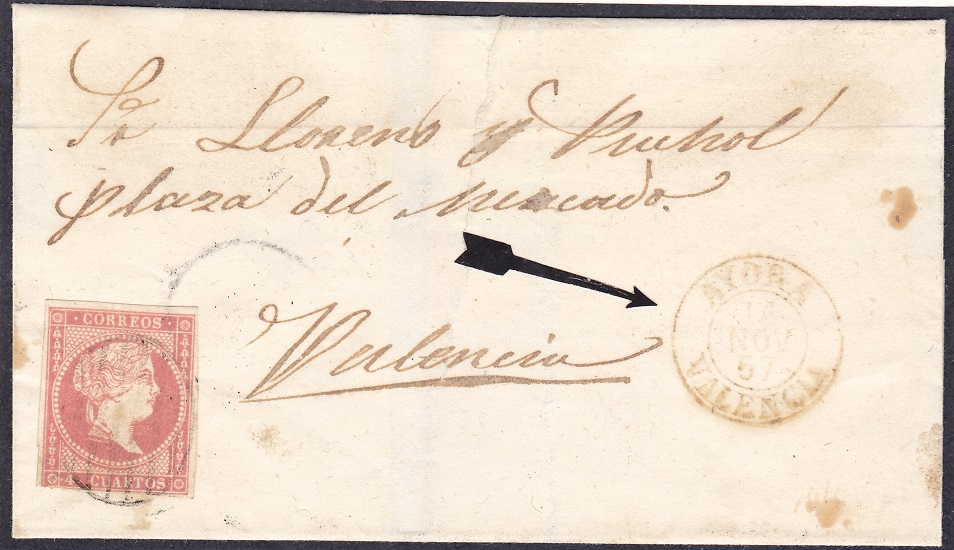 Sr Llorens y Puchol
plaza del Mercado.
Valencia
AYORA
14
NOV
57
VALENCIA
CORREOS
4 CUARTOS